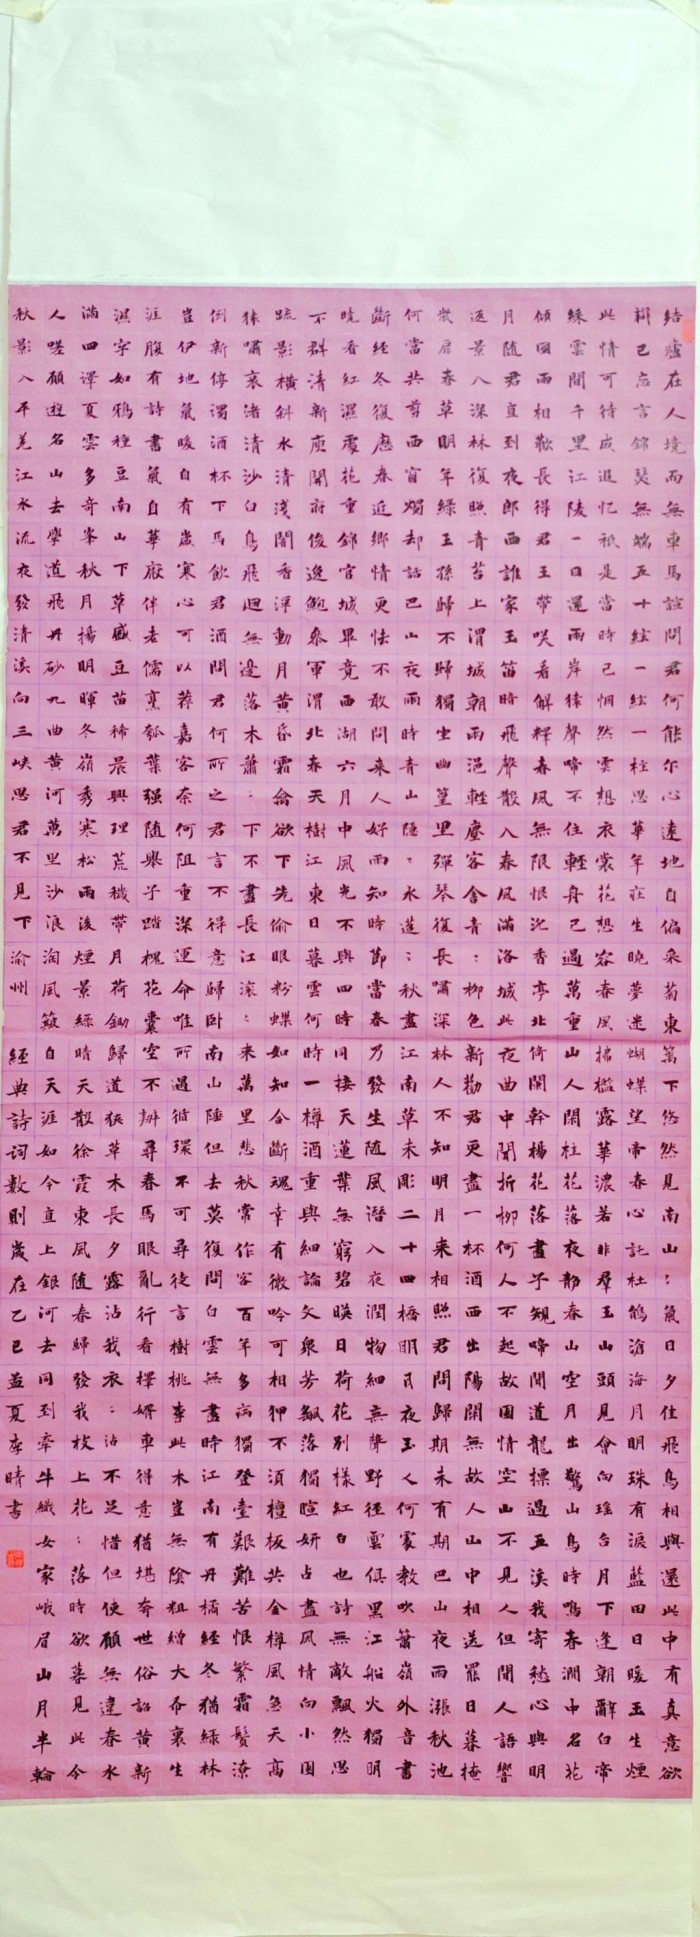 結廬在人境而無車馬諠問君何能尔心遠地自偏采菊東籬下悠然見南山：氣日夕佳飛鳥相與還此中有真意欲
辯已忘言錦瑟無端五十絃一絃一柱思華年莊生曉夢迷蝴蝶望帝春心託杜鵑滄海月明珠有淚藍田日暖玉生煙
此情可待成追憶祇是當時已惘然雲想衣裳花想容春風拂檻露華濃若非羣玉山頭見會向瑤台月下逢朝辭白帝
綵雲間千里江陵一日還兩岸猿聲啼不住輕舟已過萬重山人閑桂花落夜靜春山空月出驚山鳥時鳴春澗中名花
傾國兩相歡長得君王帶咲看解釋春風無限恨沉香亭北倚闌幹楊花落盡子規啼聞道龍標過五溪我寄愁心與明
月隨君直到夜郎西誰家玉笛時飛聲散入春風滿洛城此夜曲中聞折柳何人不起故国情空山不見人但聞人語響
返景入深林復照青苔上渭城朝雨浥輕塵客舍青：柳色新勸君更盡一杯酒西出陽關無故人山中相送罷日暮掩
柴扉春草明年綠王孫歸不歸獨坐幽篁里彈琴復長嘯深林人不知明月來相照君問歸期未有期巴山夜雨漲秋池
何當共剪西窗燭却話巴山夜雨時青山隱：水迢：秋盡江南草未彫二十四橋明月夜玉人何處教吹簫嶺外音書
斷經冬復歷春近鄉情更怯不敢問來人好雨知時節當春乃發生隨風潛入夜潤物細無聲野徑雲俱黑江船火獨明
曉看紅濕處花重錦官城畢竟西湖六月中風光不與四時同接天蓮葉無窮碧暎日荷花別樣紅白也詩無敵飄然思
不群清新庾開府俊逸鮑參軍渭北春天樹江東日暮雲何時一樽酒重與細論文衆芳飄落獨暄妍占盡風情向小園
疏影橫斜水清淺闇香浮動月黃昏霜禽欲下先偷眼粉蝶如知合斷魂幸有微吟可相狎不須檀板共金樽風急天高
猿嘯哀渚清沙白鳥飛迴無邊落木蕭：下不盡長江滾：來萬里悲秋常作客百年多病獨登臺艱難苦恨繁霜鬢潦
倒新停濁酒杯下馬飲君酒問君何所之君言不得意歸卧南山陲但去莫復問白雲無盡時江南有丹橘經冬猶綠林
豈伊地氣暖自有歲寒心可以荐嘉客奈何阻重深運命唯所遇循環不可尋徒言樹桃李此木豈無陰粗繒大布裹生
涯腹有詩書氣自華厭伴老儒烹瓠葉强隨舉子踏槐花囊空不辦尋春馬眼亂行看擇婿車得意猶堪夸世俗詔黃新
濕字如鴉種豆南山下草盛豆苗稀晨興理荒穢帶月荷鋤歸道狹草木長夕露沾我衣：沾不足惜但使願無違春水
滿四澤夏雲多奇峯秋月揚明暉冬嶺秀寒松雨後煙景綠晴天散徐霞東風隨春歸發我枝上花：落時欲暮見此令
人嗟願遊名山去學道飛丹砂九曲黃河萬里沙浪淘風簸自天涯如今直上銀河去同到牽牛織女家峨眉山月半輪
秋影入平羌江水流夜發清溪向三峡思君不見下渝州 經典詩詞數則歲在乙巳孟夏李晴書